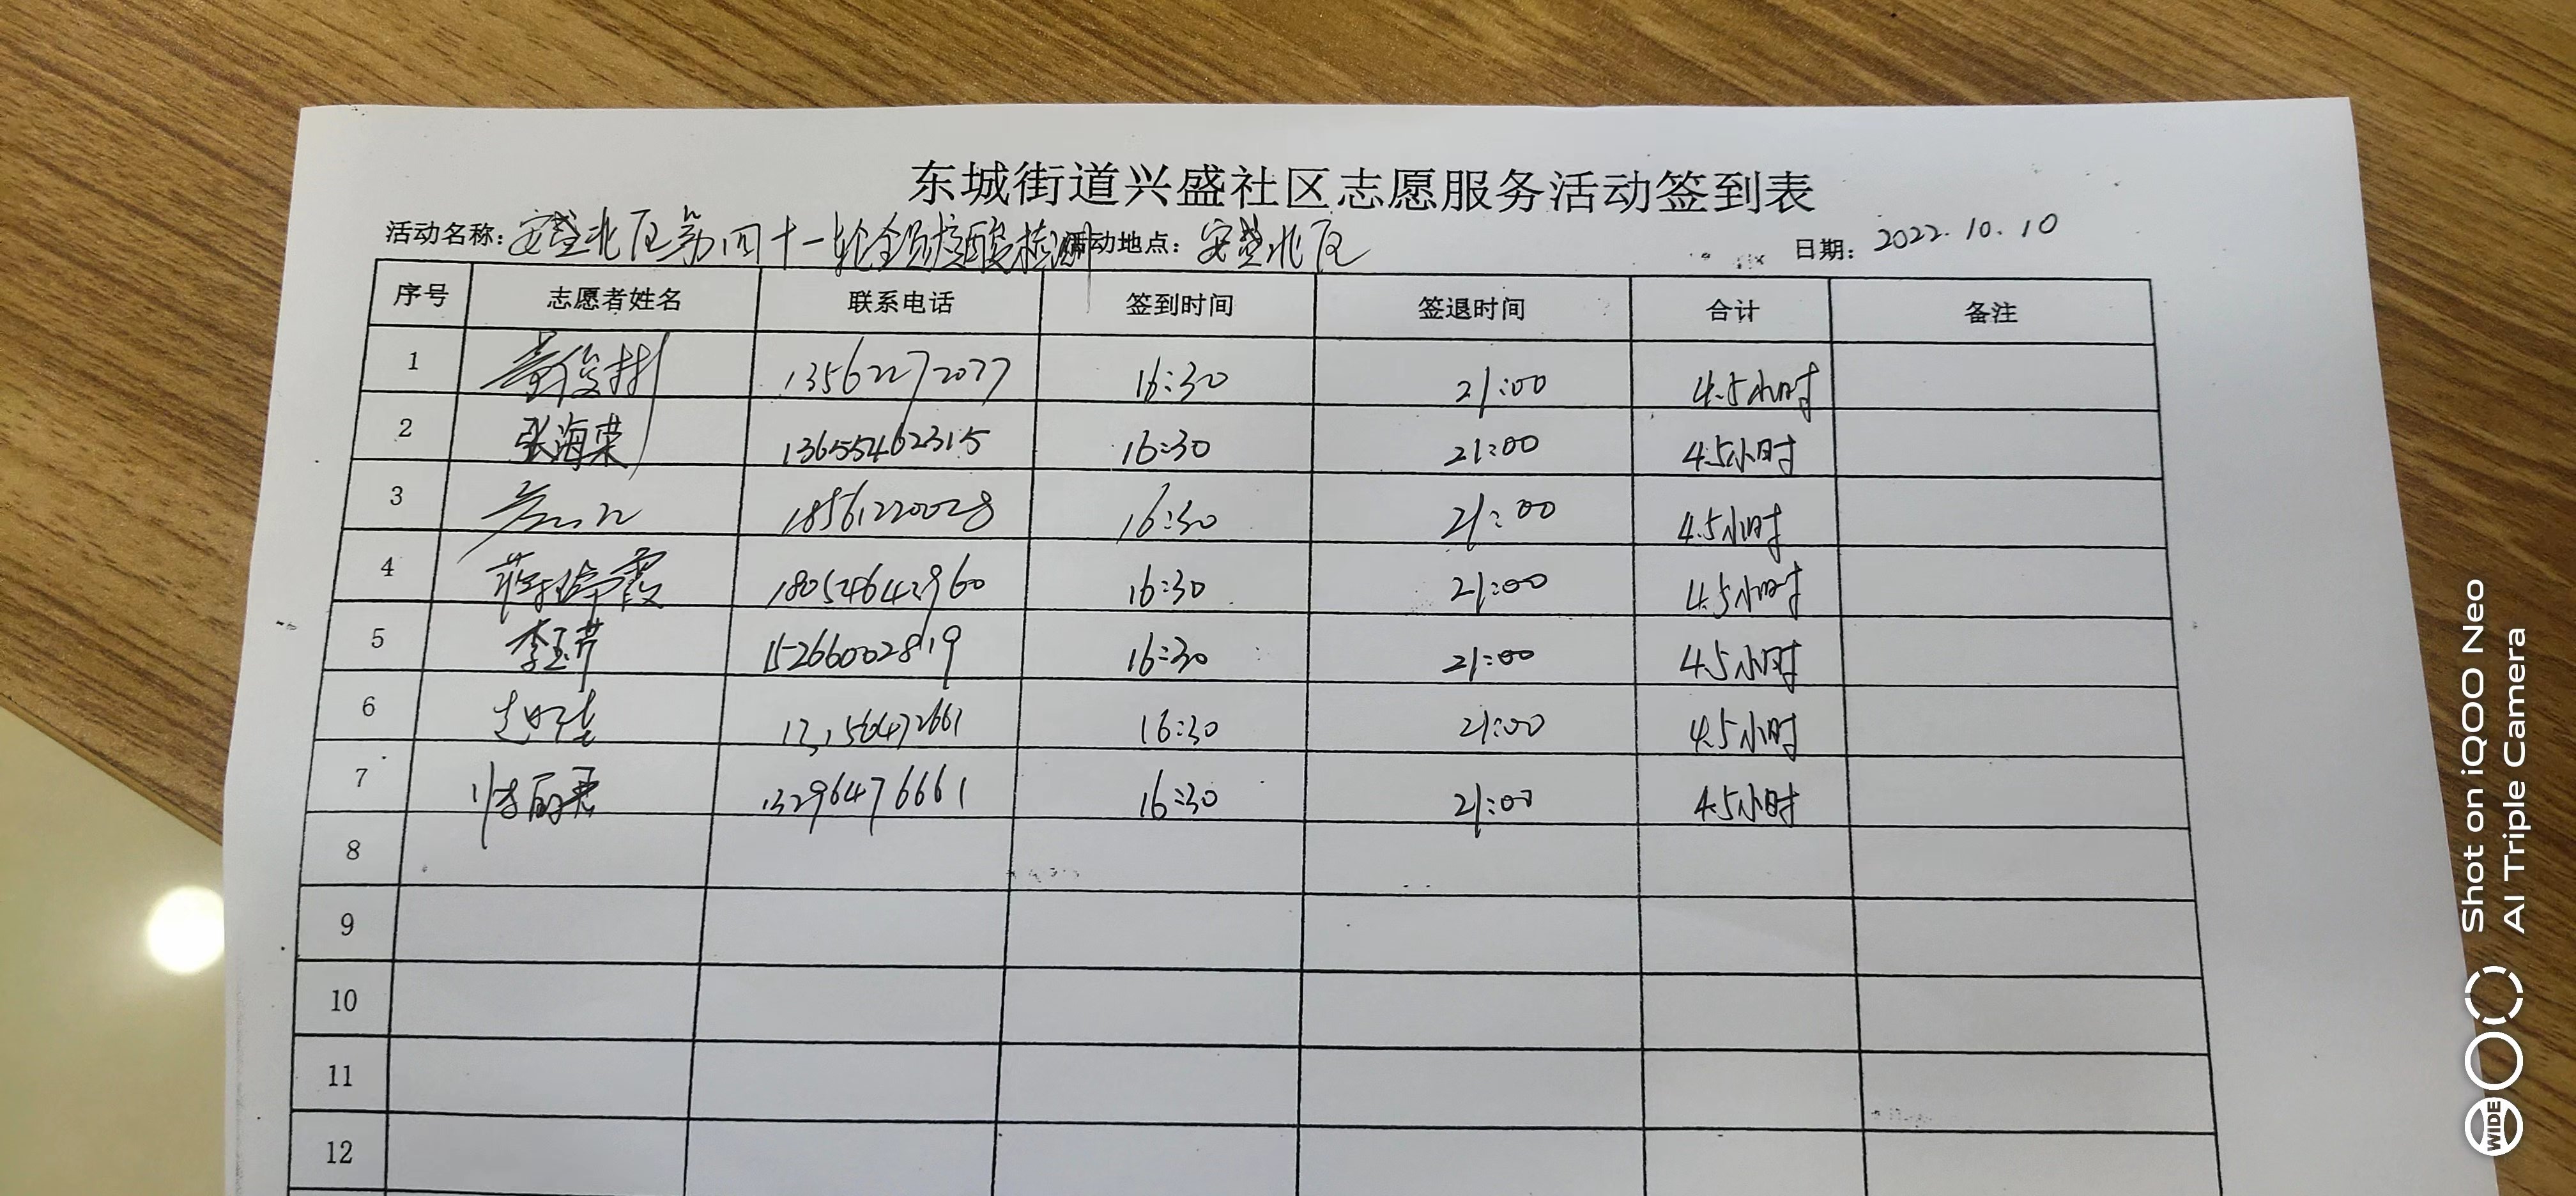 东城街道兴盛社区志愿服务活动签到表
活动名称：安盛北区第四十一轮全员核酸检测 活动地点：安盛北区 日期：2022.10.10
序号 志愿者姓名 联系电话 签到时间 签退时间 合计 备注
1 13562272077 16:30 21:00 4.5小时
2 张海荣 13655462315 16:30 21:00 4.5小时
3 18561220028 16:30 21:00 4.5小时
4 16:30 21:00 4.5小时
5 李玉芹 15266002819 16:30 21:00 4.5小时
6 16:30 21:00 4.5小时
7 13296476661 16:30 21:00 4.5小时
8
9
10
11
12
Shot on iQOO Neo
AI Triple Camera
WIDE